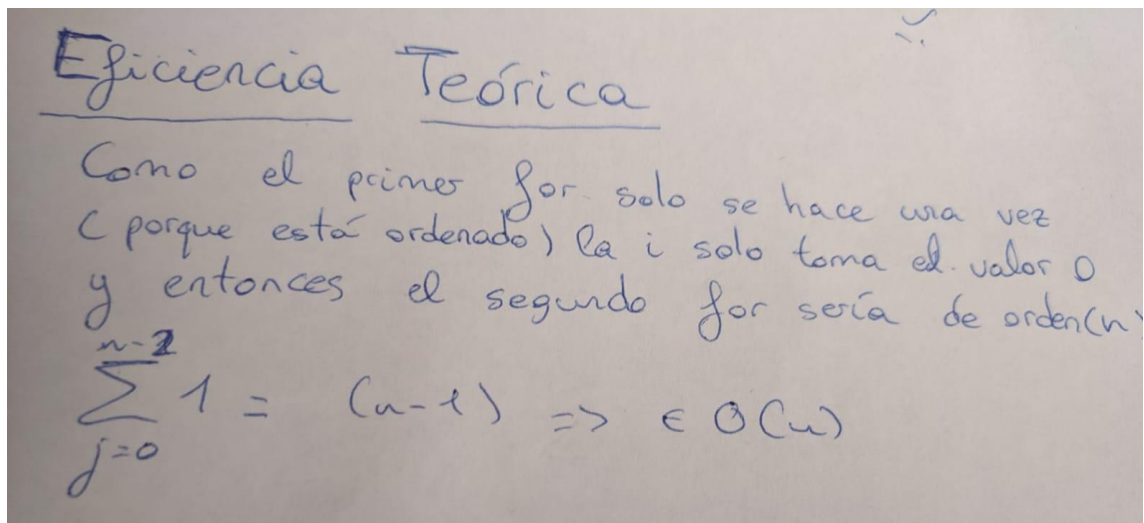 Eficiencia Teórica
Como el primer for solo se hace una vez
(porque está ordenado) la i solo toma el valor 0
y entonces el segundo for sería de orden(n)
n-2
∑ 1 = (n-1) => ∈ O(n)
j=0